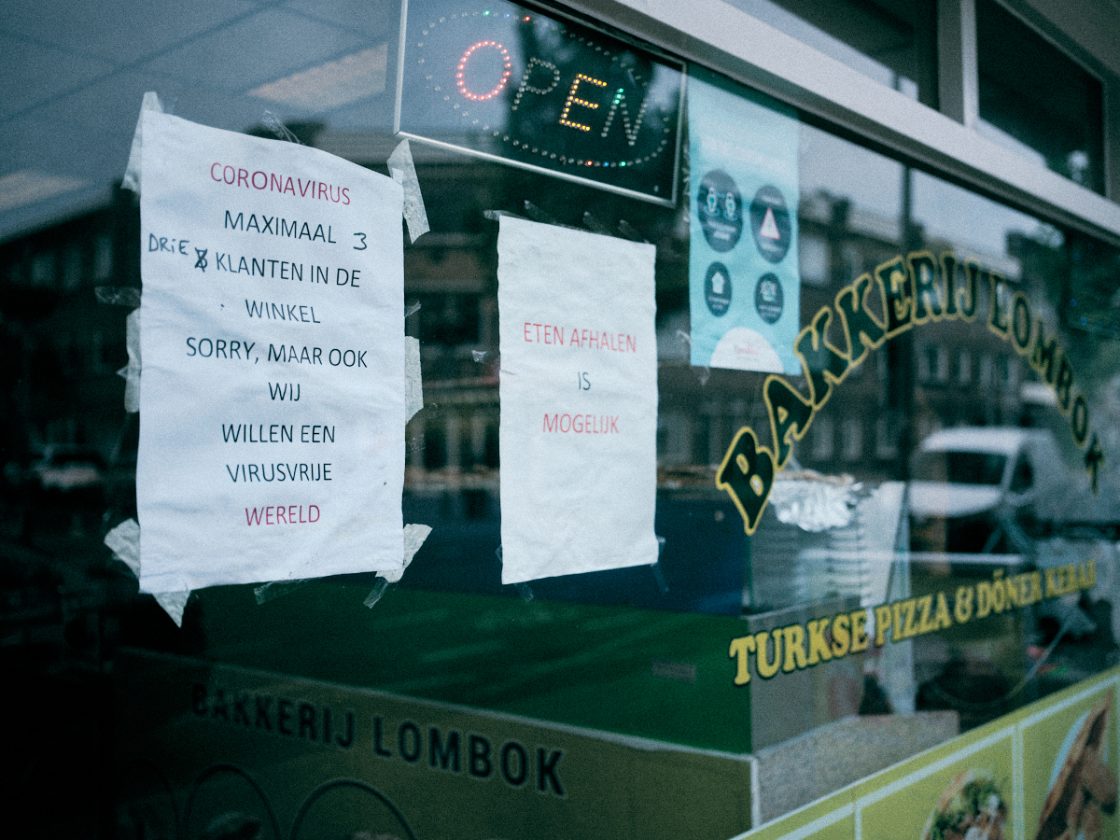 OPEN
CORONAVIRUS
MAXIMAAL 3
DRIE KLANTEN IN DE
WINKEL
SORRY, MAAR OOK
WIJ
WILLEN EEN
VIRUSVRIJE
WERELD
ETEN AFHALEN
IS
MOGELIJK
BAKKERIJ LOMBOK
TURKSE PIZZA & DÖNER KEBAB
BAKKERIJ LOMBOK